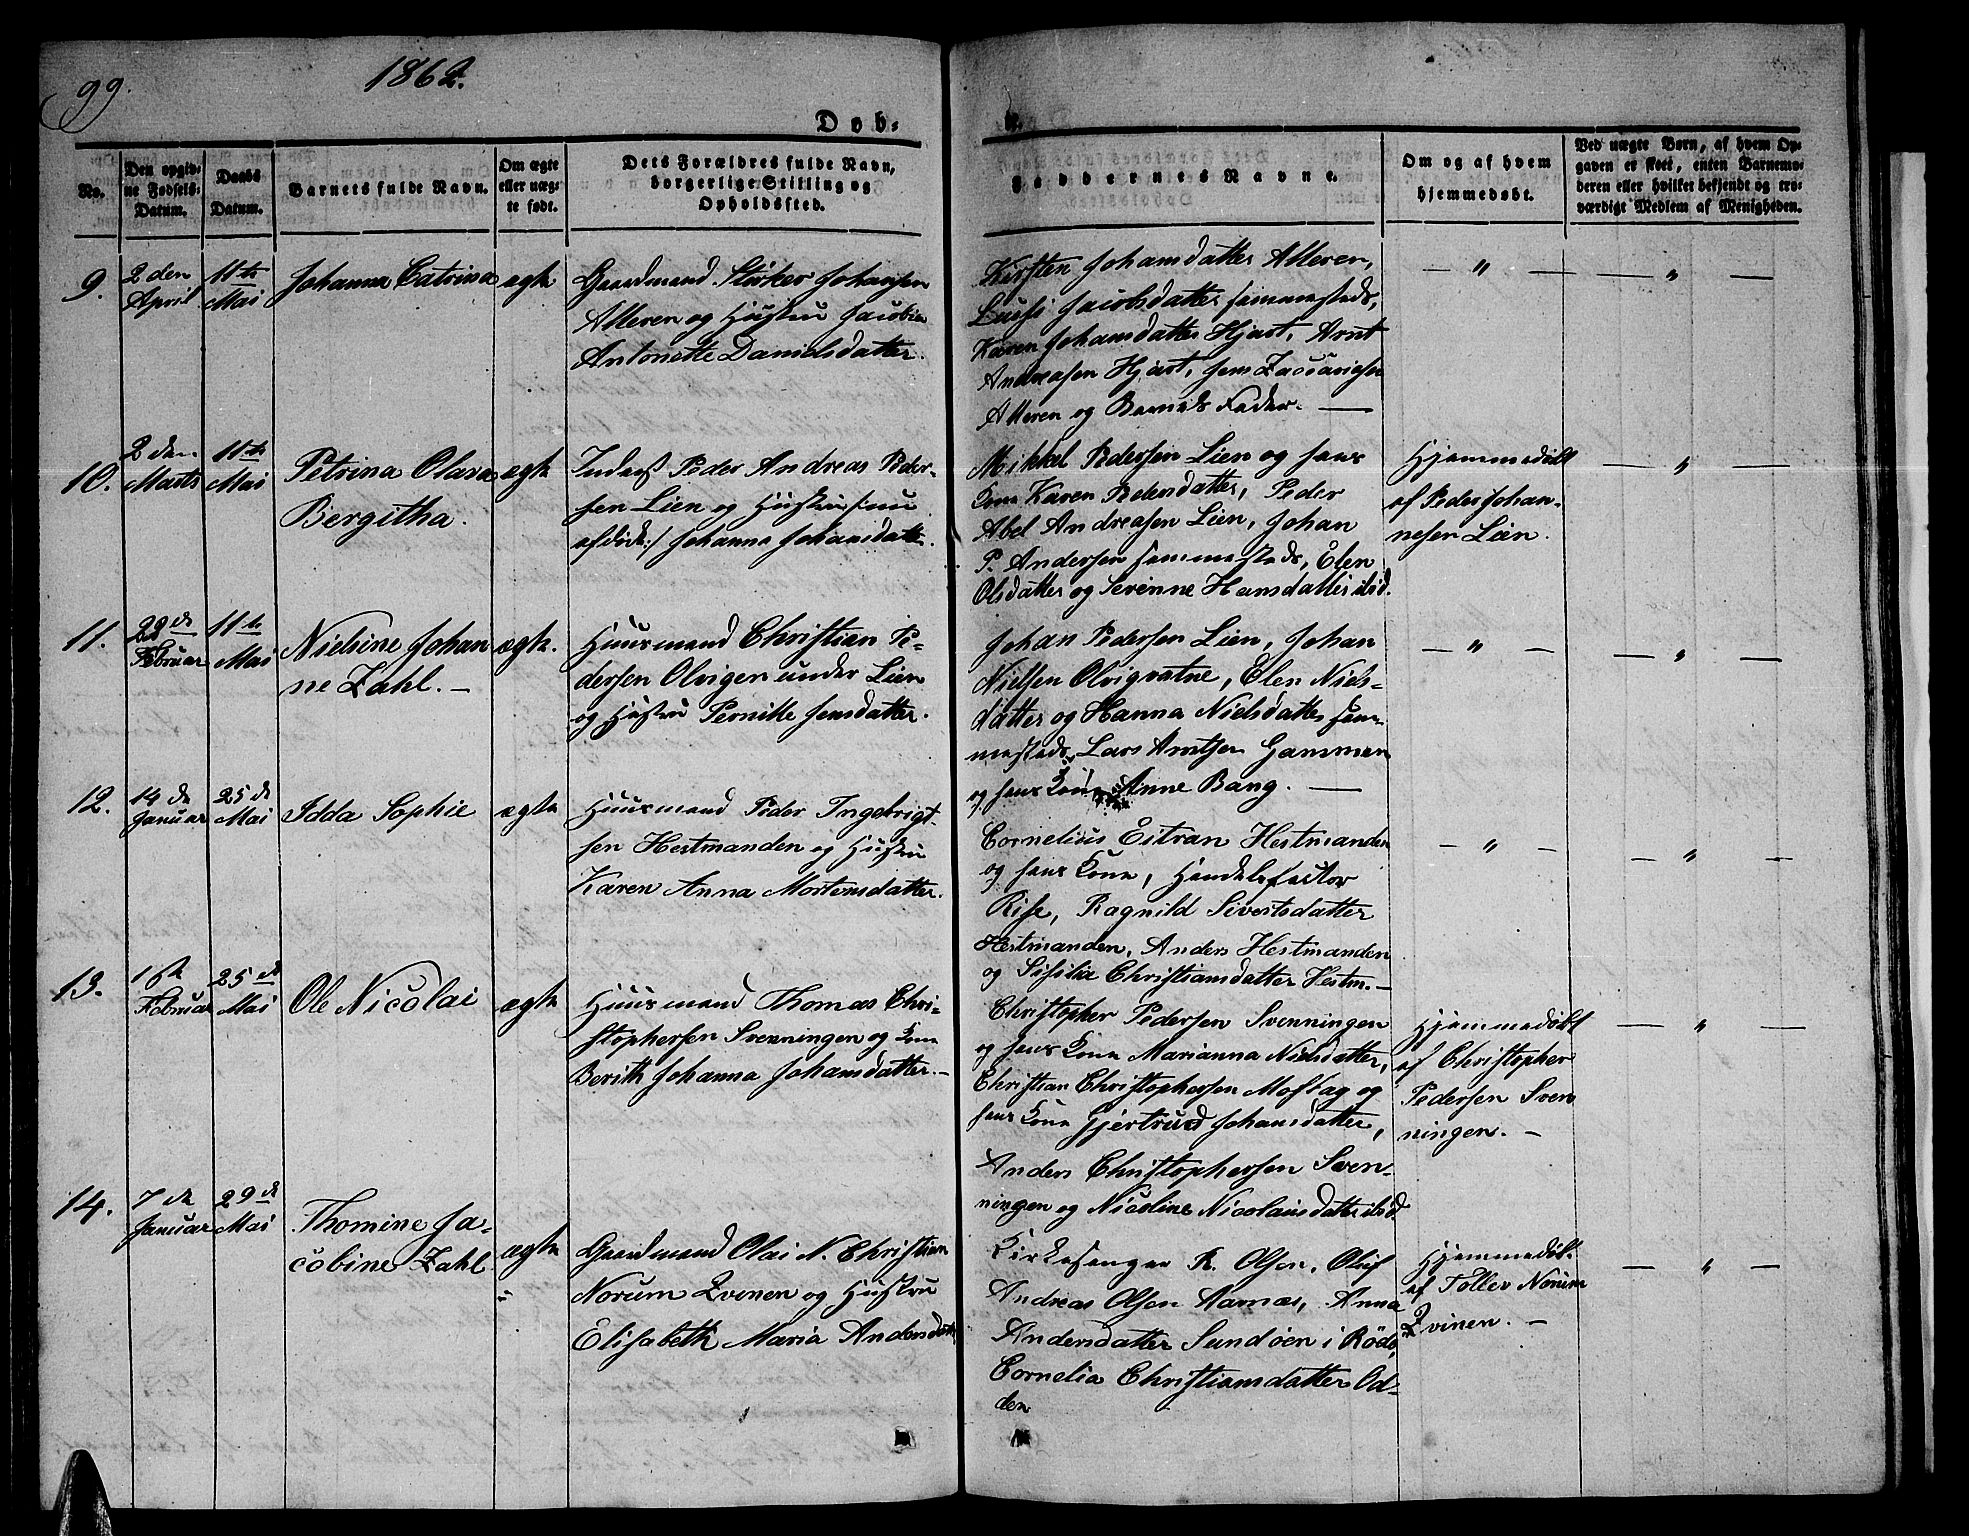 99.
1862.
Døb-
te.
No.
Den opgiv-
ne Fødsels-
Datum.
Daabs
Datum.
Barnets fulde Navn.
Om ægte
eller uæg-
te født.
Dets Forældres fulde Navn,
borgerlige Stilling og
Opholdssted.
Faddernes Navne.
Om og af hvem
hjemmedøbt.
Ved uægte Børn, af hvem Op-
gaven er skeet, enten Barnemo-
deren eller hvilket bekjendt og tro-
værdigt Medlem af Menigheden.
9.
2den
April
11te
Mai
Johanna Catrina
ægte
Gaardmand Størker Johansen
Alteren og Hustru Jacobia
Antonette Danielsdatter.
Kirsten Johansdatter Alteren,
Lussi Jacobsdatter sammesteds,
Karen Johansdatter Hjart, Arnt
Andreasen Hjart, Jens Zaccariasen
Alteren og Barnets Fader. —
— " —
— " —
10.
2den
Marts
11te
Mai
Petrina Olava
Bergitha.
ægte
Inderst Peder Andreas Peder-
sen Lien og Hustru (nu
afdøde:) Johanna Johansdatter.
Mikkel Pedersen Lien og hans
Kone Karen Pedersdatter, Peder
Abel Andreasen Lien, Johan
P. Andersen sammesteds, Elen
Olsdatter og Serenne Hansdatter ibid.
Hjemmedøbt
af Peder Johan-
nesen Lien.
— " —
11.
22de
Februar
11te
Mai
Nielsine Johan
ne Zahl. —
ægte.
Huusmand Christian Pe-
dersen Olvigen under Lien
og Hustru Pernille Jensdatter.
Johan Pedersen Lien, Johan
Nielsen Olvigvatne, Elen Niels-
datter og Hanna Nielsdatter sam-
mesteds, Lars Arntsen Gammen
og hans Kone Anne Bang. —
— " —
— " —
12.
14de
Januar
25de
Mai
Idda Sophie
ægte
Huusmand Peder Ingebrigt-
sen Hestmanden og Hustru
Karen Anna Mortensdatter.
Cornelius Eitran Hestmanden
og hans Kone, Handelsfactor
Rise, Ragnild Sivertsdatter
Hestmanden, Anders Hestmanden
og Sisilie Christiansdatter Hestm. —
— " —
— " —
13.
1ste
Februar
25de
Mai
Ole Nicolai
ægte
Huusmand Thomas Chri-
stophersen Svenningen og Kone
Berith Johanna Johansdatter. —
Christopher Pedersen Svenningen
og hans Kone Marianna Nielsdatter,
Christian Christophersen Moflag og
hans Kone Gjertrud Johansdatter,
Anders Christophersen Sven-
ningen og Nicoline Nicolaisdatter ibid.
Hjemmedøbt
af Christopher
Pedersen Sven
ningen. —
— " —
14.
7de
Januar
29de
Mai
Thomine Ja-
cobine Zahl
ægte
Gaardmand Olai N. Christian
Norum Qvinen og Hustru
Elisabeth Maria Andersdatter
Kirkesanger R. Olsen, Oluf
Andreas Olsen Aarnæs, Anna
Andersdatter Sundøen i Rödö,
Cornelia Christiansdatter Od-
den
Hjemmedøbt
af Toller Norum
Qvinen. —
— " —